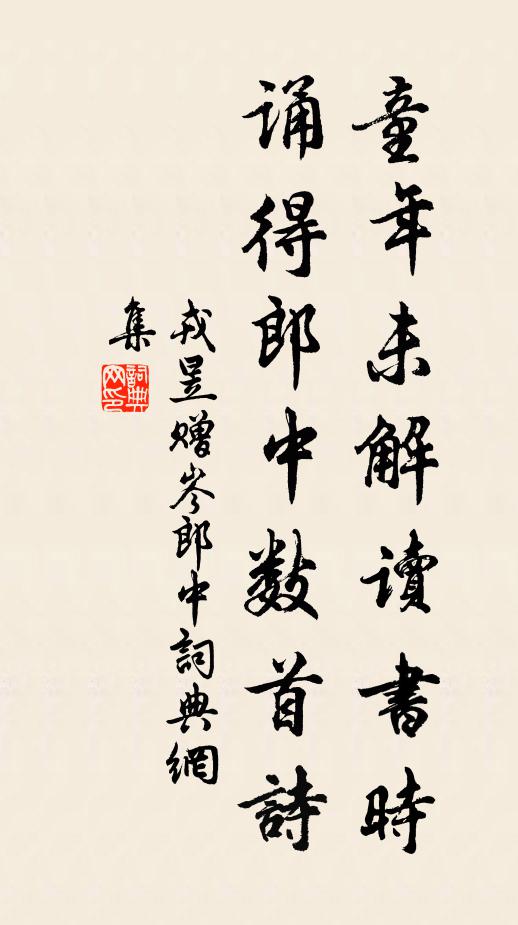 童年未解读書時
诵得郎中数首詩
戎昱赠岑郎中詞典網
集
詞典
网印